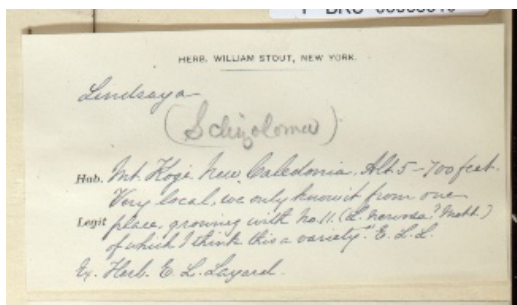 HERB. WILLIAM STOUT, NEW YORK.
Lindsaya
(Schizoloma)
Hab. Mt. Koge New Caledonia, Alt. 5-700 feet.
Very local, we only know it from one
Legit place, growing with no. 11. (L.
of which I think this a variety." E. L. L.
Ex. Herb. E. L. Layard.